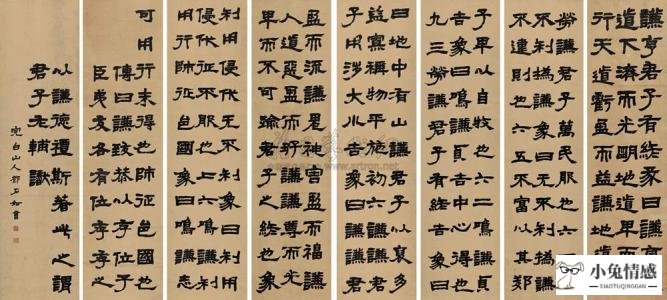 謙亨君子有終彖曰謙亨天
道下濟而光明地道卑而上
行天道虧盈而益謙地道變
勞謙君子萬民服也六四无
不利撝謙象曰无不利撝謙
不違則也六五不富以其鄰
子卑以自牧也六二鳴謙貞
吉象曰鳴謙貞吉中心得也
九三勞謙君子有終吉象曰
曰地中有山謙君子以裒多
益寡稱物平施初六謙謙君
子用涉大川吉象曰謙謙君
盈而流謙鬼神害盈而福謙
人道惡盈而好謙謙尊而光
卑而不可踰君子之終也象
利用侵伐无不利象曰利用
侵伐征不服也上六鳴謙利
用行師征邑國象曰鳴謙志
可用行未得也師征邑國也
傳曰謙致恭以存位子
臣各有位存存之
以謙德禮斯著此之謂
君子光輔
完白山人鄧石如書
小兔情感
XIAOTUQINGGAN